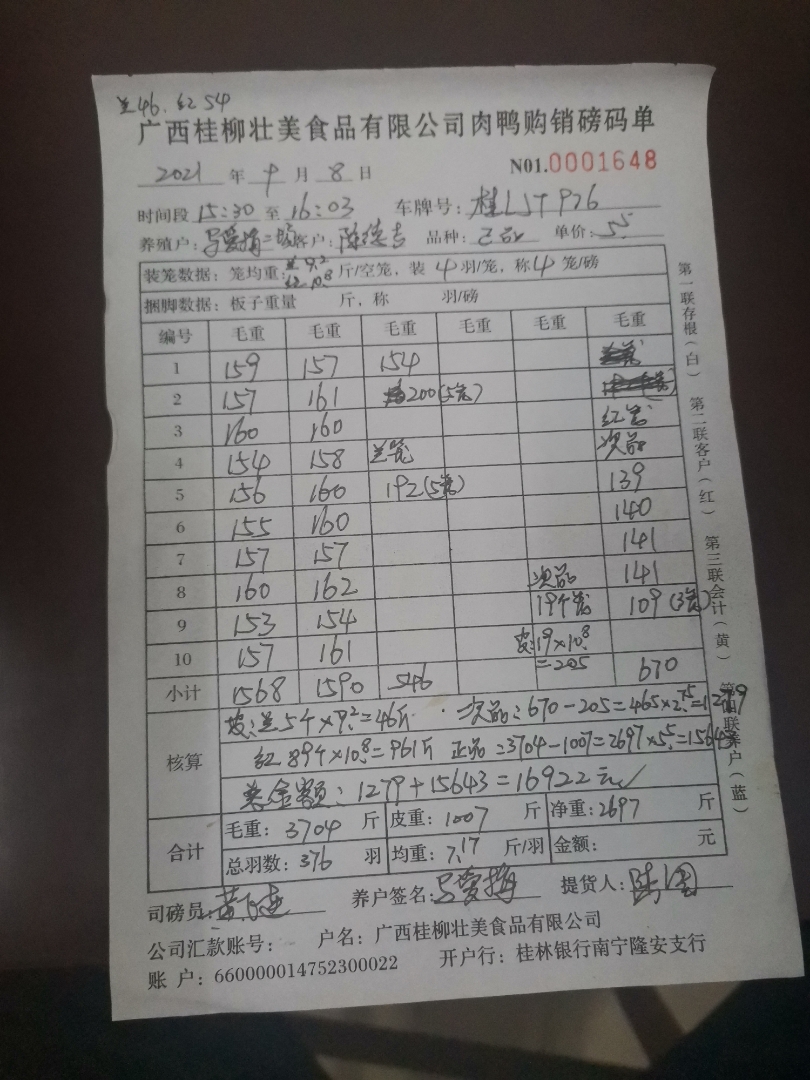 兰46. 红54
广西桂柳壮美食品有限公司肉鸭购销磅码单
2021 年 9 月 8 日 N01.0001648
时间段 15:30 至 16:03 车牌号: 桂L
养殖户: 客户: 陈德吉 品种: 单价: 5.5
装笼数据: 笼均重: 兰9.2 红10.8 斤/空笼, 装 4 羽/笼, 称 4 笼/磅
捆脚数据: 板子重量 斤, 称 羽/磅
编号 毛重 毛重 毛重 毛重 毛重 毛重
1 159 157 154
2 157 161 200(5笼)
3 160 160 红笼
4 154 158 兰笼 次品
5 156 160 192(5笼) 139
6 155 160 140
7 157 157 141
8 160 162 次品 141
9 153 154 19个笼 109(3笼)
10 157 161 皮:19×10.8=205
小计 1568 1590 546 670
核算
皮:兰5个×9.2=46斤 次品:670-205=465×2.75=1279
红89个×10.8=961斤 正品=3704-1007=2697×5.5=15643
总金额:1279+15643=16922元
合计
毛重: 3704 斤 皮重: 1007 斤 净重: 2697 斤
总羽数: 376 羽 均重: 7.17 斤/羽 金额: 元
司磅员: 养户签名: 提货人:
公司汇款账号: 户名: 广西桂柳壮美食品有限公司
账 户: 660000014752300022 开户行: 桂林银行南宁隆安支行
第一联存根(白) 第二联客户(红) 第三联会计(黄) 第四联养户(蓝)